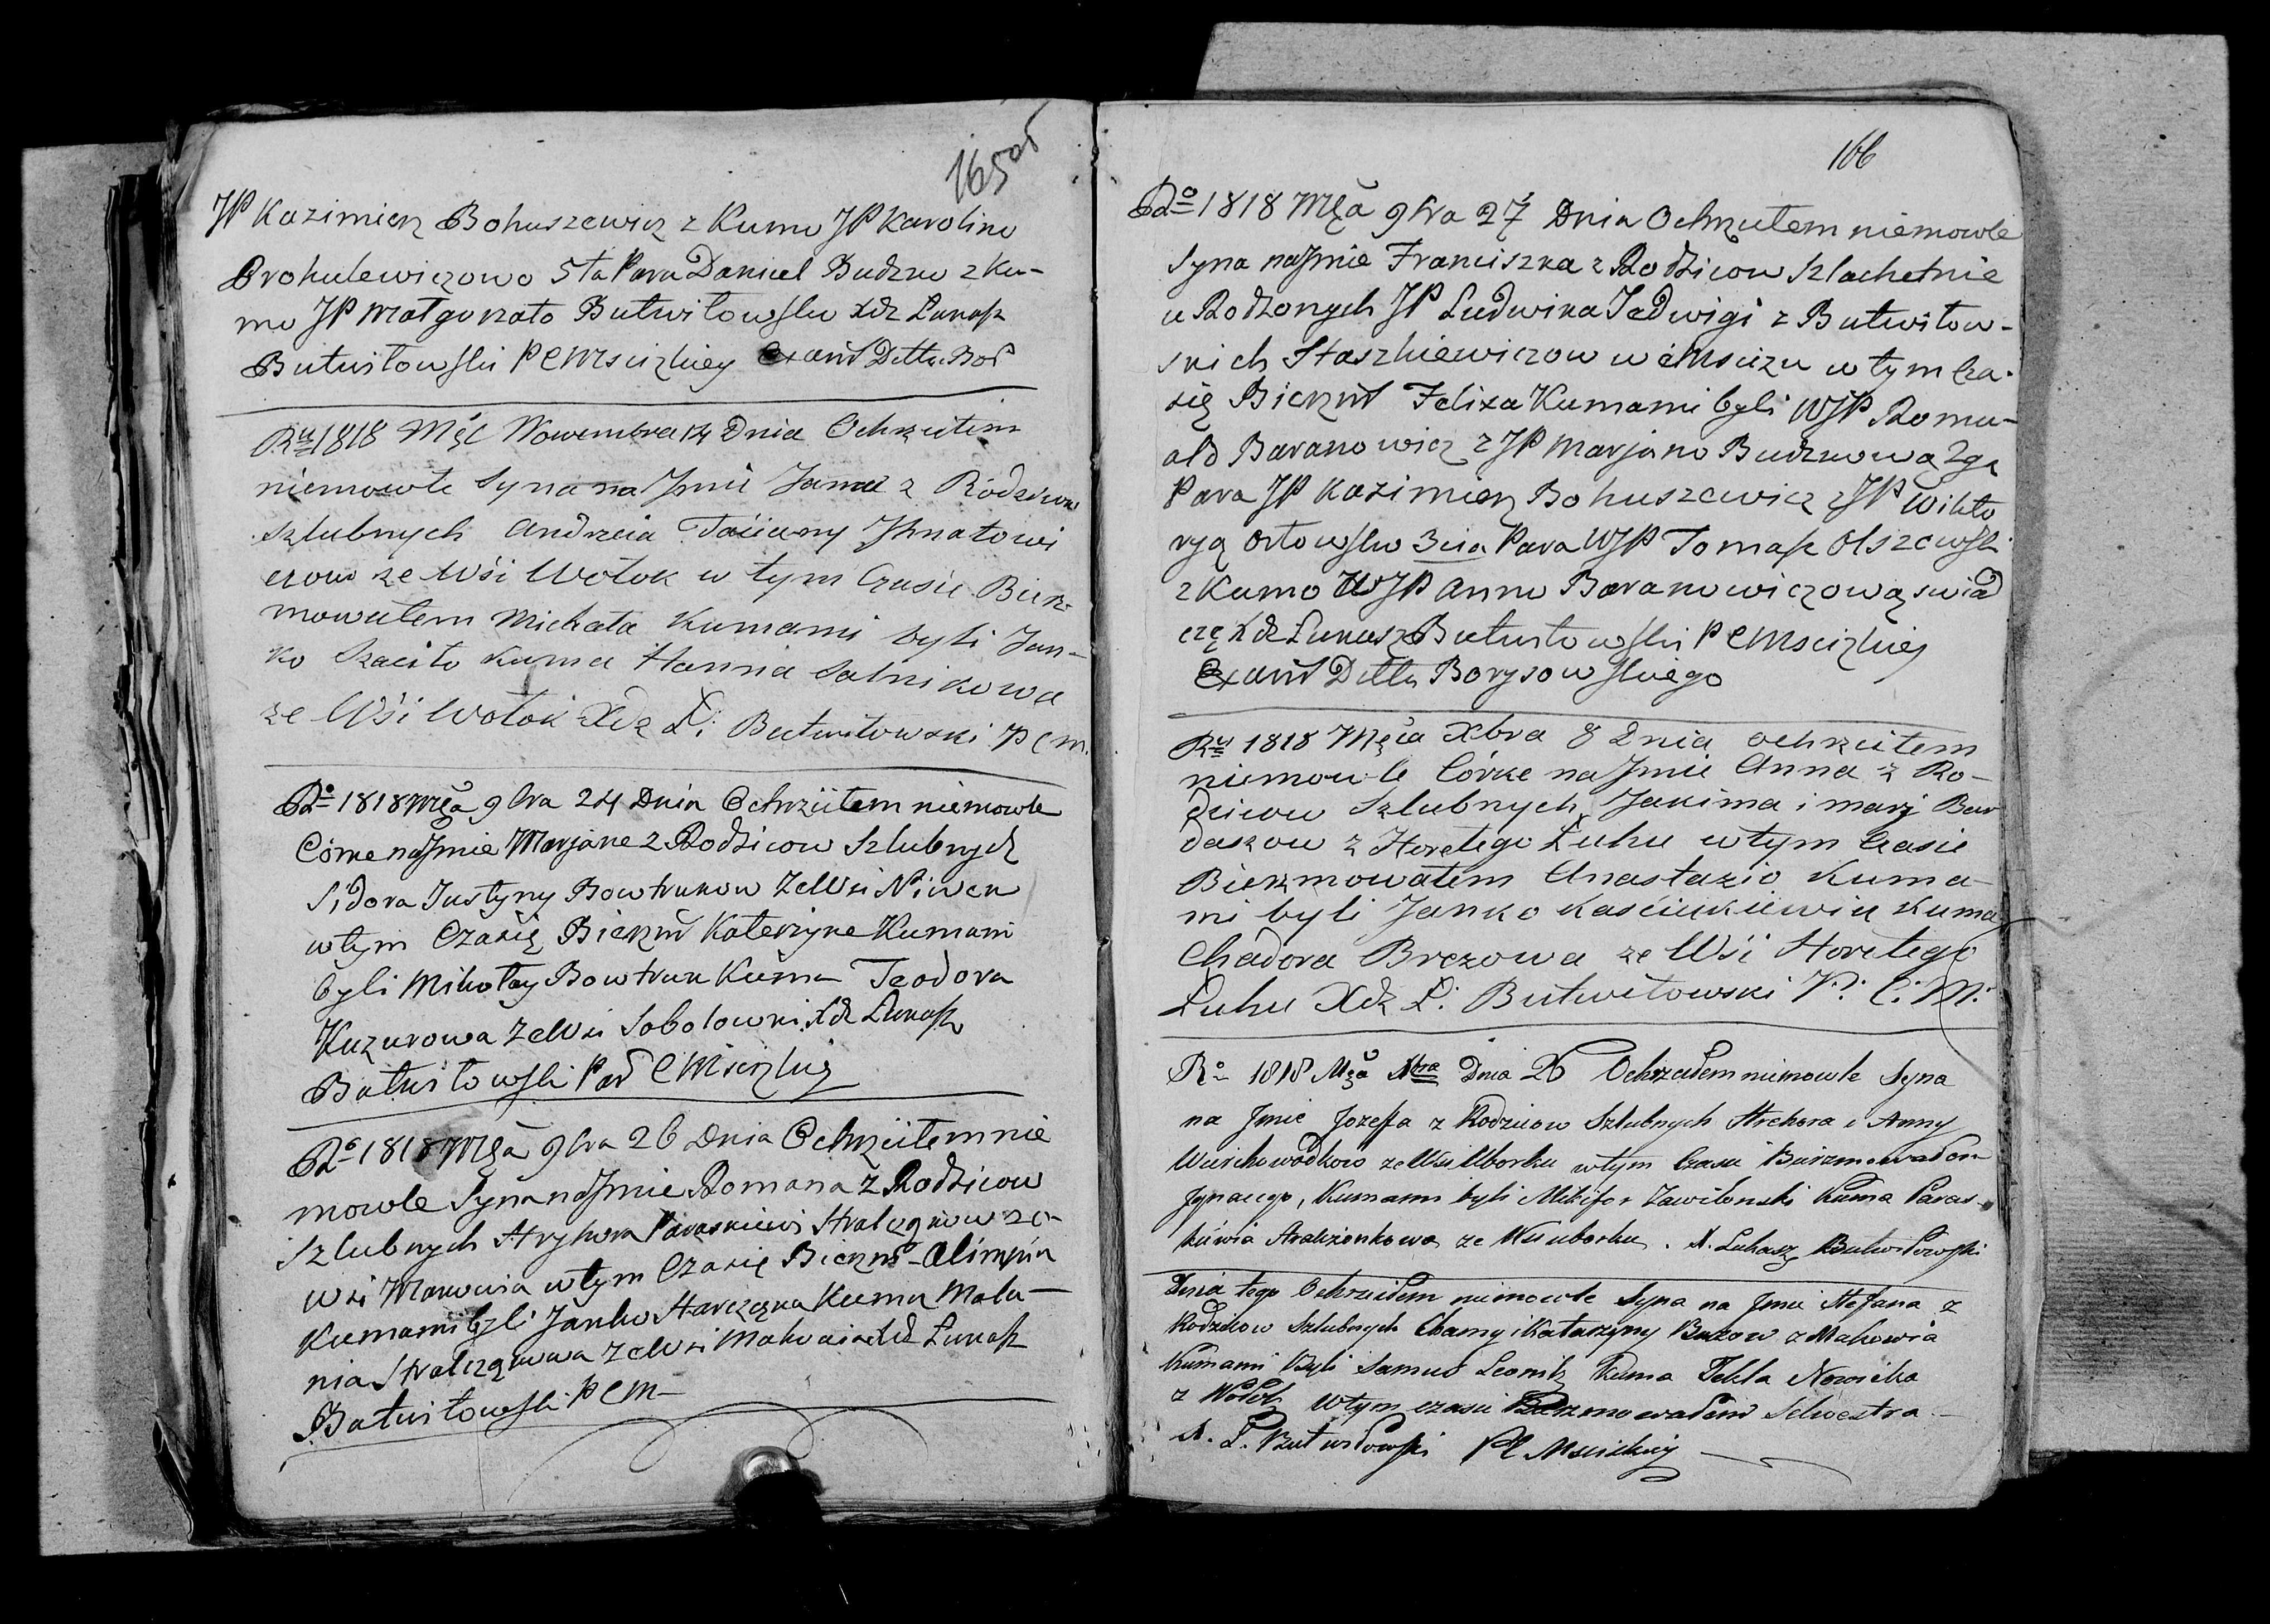 165об
JP Kazimierz Bohuszewicz z Kumo JP Karolino
Brohulewiczowo 5ta Para Daniel Budzko z Ku-
mo JP Małgorzato Butwiłowsko Xdz Łukasz
Butwiłowski P C Mscizkiey Exam Dettu Bor
Ru 1818 Mśc Nowembra 14 Dnia Ochrzciłem
niemowle Syna na Jmie Jana z Rodziców
Szlubnych Andrzeia Taciany Jhnatowi
czow ze Wśi Wołok w tym Czasie Bierz-
mowałem Michała Kumami byli Jan-
ko Szaciło Kuma Hanna Salnikowa
ze Wśi Wołok Xdz Ł: Butwiłowski P C M.
Ro 1818 Mca 9bra 24 Dnia Ochrzciłem niemowle
Córke na Jmie Marjane z Rodzicow Szlubnych
Sidora Justyny Bowtrukow ze Wsi Niwek
w tym Czasie Bierzm Katerzyne Kumami
byli Mikołay Bowtruk Kuma Teodora
Kuzurowa ze Wsi Sobolowki Xdz Łukasz
Butwiłowski Par C Mscizkiey
Ro 1818 Mca 9bra 26 Dnia Ochrzciłem nie
mowle Syna na Jmie Romana z Rodzicow
Szlubnych Hryhora Paraskiewi Stralczonkow ze
Wsi Makowia w tym Czasie Bierzm Alimpia
Kumami byli Janko Harczonka Kuma Mała-
nia Stralczonkowa ze Wsi Makowia Xdz Łukasz
Butwiłowski P C M
166
Ro 1818 Mca 9bra 27 Dnia Ochrzciłem niemowle
Syna na Jmie Franciszka z Rodzicow Szlachetnie
u Rodzonych JP Ludwika Jadwigi z Butwiłow-
skich Staszkiewiczow w Mscizu w tym Cza-
się Bierzm Felixa Kumami byli WJP Romu-
ald Baranowicz z JP Marjano Budzkową 2ga
Para JP Kazimierz Bohuszewicz z JP Wikto
ryą Orłowsko 3cia Para WJP Tomasz Olszewski
z Kumo WJP Anno Baranowiczową swiad
czę Xdz Łukasz Butwiłowski P C Mscizkiey
Exam Dettu Borysowskiego
Ru 1818 Męca Xbra 8 Dnia ochrzciłem
niemowle Córke na Jmie Anna z Ro-
dzicow Szlubnych Jakima i marj Bar
daszow z Horełego Łuhu w tym Czasie
Bierzmowałem Anastazio Kuma-
mi byli Janko Kaściukiewicz Kuma
Chadora Brezowa ze Wśi Horełego
Łuhu Xdz Ł: Butwiłowski P: C: M:
Ro 1818 Mca Xbra Dnia 26 Ochrzciłem niemowle Syna
na Jmie Jozeffa z Rodzicow Szlubnych Hrehora i Anny
Wierchowodkow ze Wsi Uborku w tym Czasie Bierzmowałem
Jgnacego, Kumami byli Mikifor Zawilenski Kuma Paras-
kiewia Stralczonkowa ze Wsi uborku. X. Łukasz Butwiłowski
Dnia tego Ochrzciłem niemowle Syna na Jmie Stefana z
Rodzicow Szlubnych Chamy i Katarzyny Buzow z Makowia
Kumami Byli Samuś Leonik Kuma Tekla Nowicka
z Wołok w tym czasie Bierzmowałem Selwestra
X. Ł. Butwiłowski PC Mscizkiey